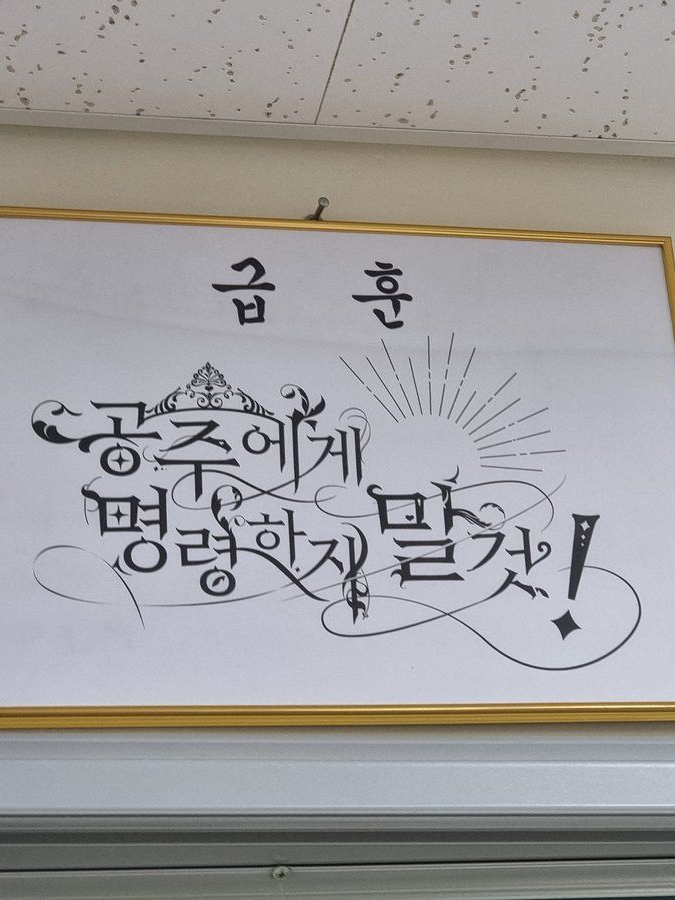 급 훈
공주에게
명령하지 말 것!